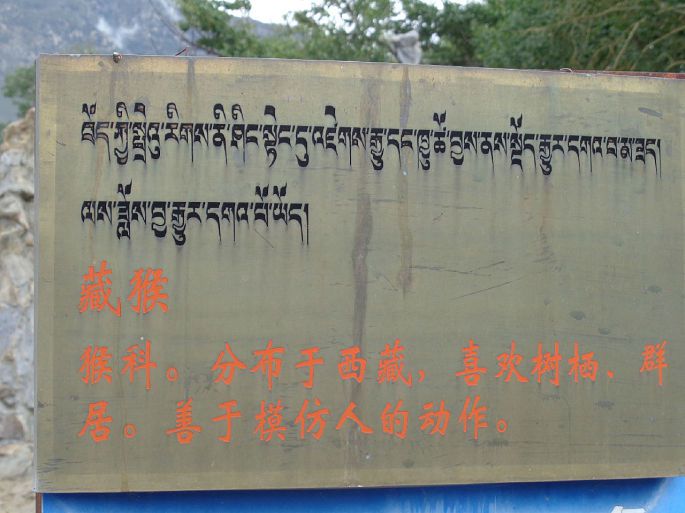 བོད་ཀྱི་སྤྲེའུ་རིགས་ནི་ཤིང་སྟེང་དུ་འཛེགས་རྒྱུ་དང་ཁྱུ་ཚོ་བྱས་ནས་སྡོད་རྒྱུར་དགའ་བ་མ་ཟད།
ལས་ཟློས་བྱ་རྒྱུར་དགའ་པོ་ཡོད།
藏猴
猴科。分布于西藏，喜欢树栖、群
居。善于模仿人的动作。